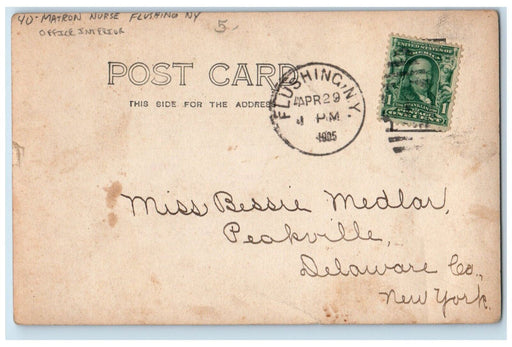 40- MATRON NURSE FLUSHING NY
OFFICE INTERIOR
5
POST CARD
THIS SIDE FOR THE ADDRESS
FLUSHING, N.Y.
APR 29
PM
1905
1
Miss Bessie Medlar,
Peakville,
Delaware Co.,
New York.